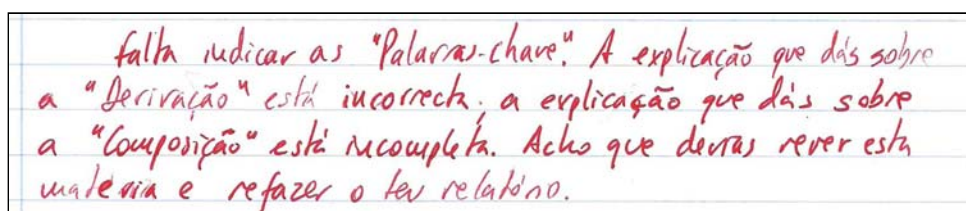 Falta indicar as "Palavras-chave". A explicação que dás sobre
a "Derivação" está incorrecta; a explicação que dás sobre
a "Composição" está incompleta. Acho que devias rever esta
matéria e refazer o teu relatório.